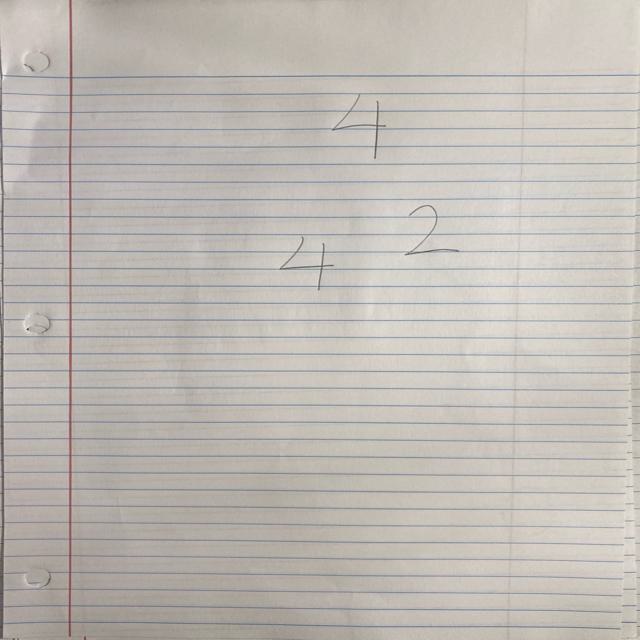 4
4 2